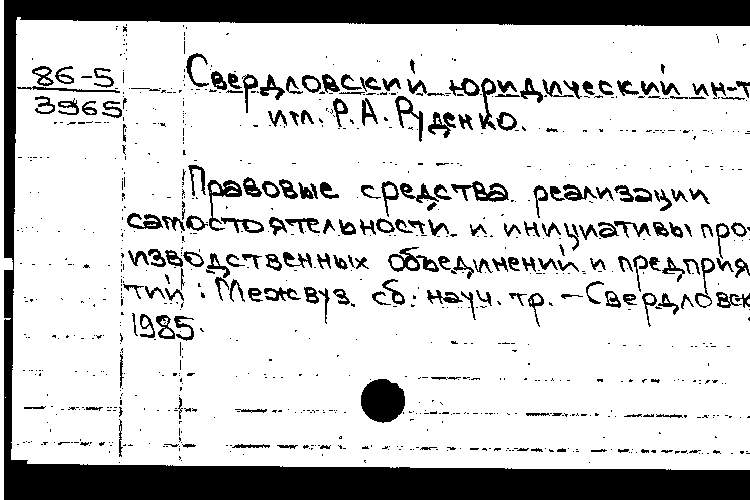 86-5
3965
Свердловский юридический ин-т
им. Р.А. Руденко.
Правовые средства реализации
самостоятельности и инициативы про-
изводственных объединений и предприя-
тий : Межвуз. сб. науч. тр. – Свердловск
1985.